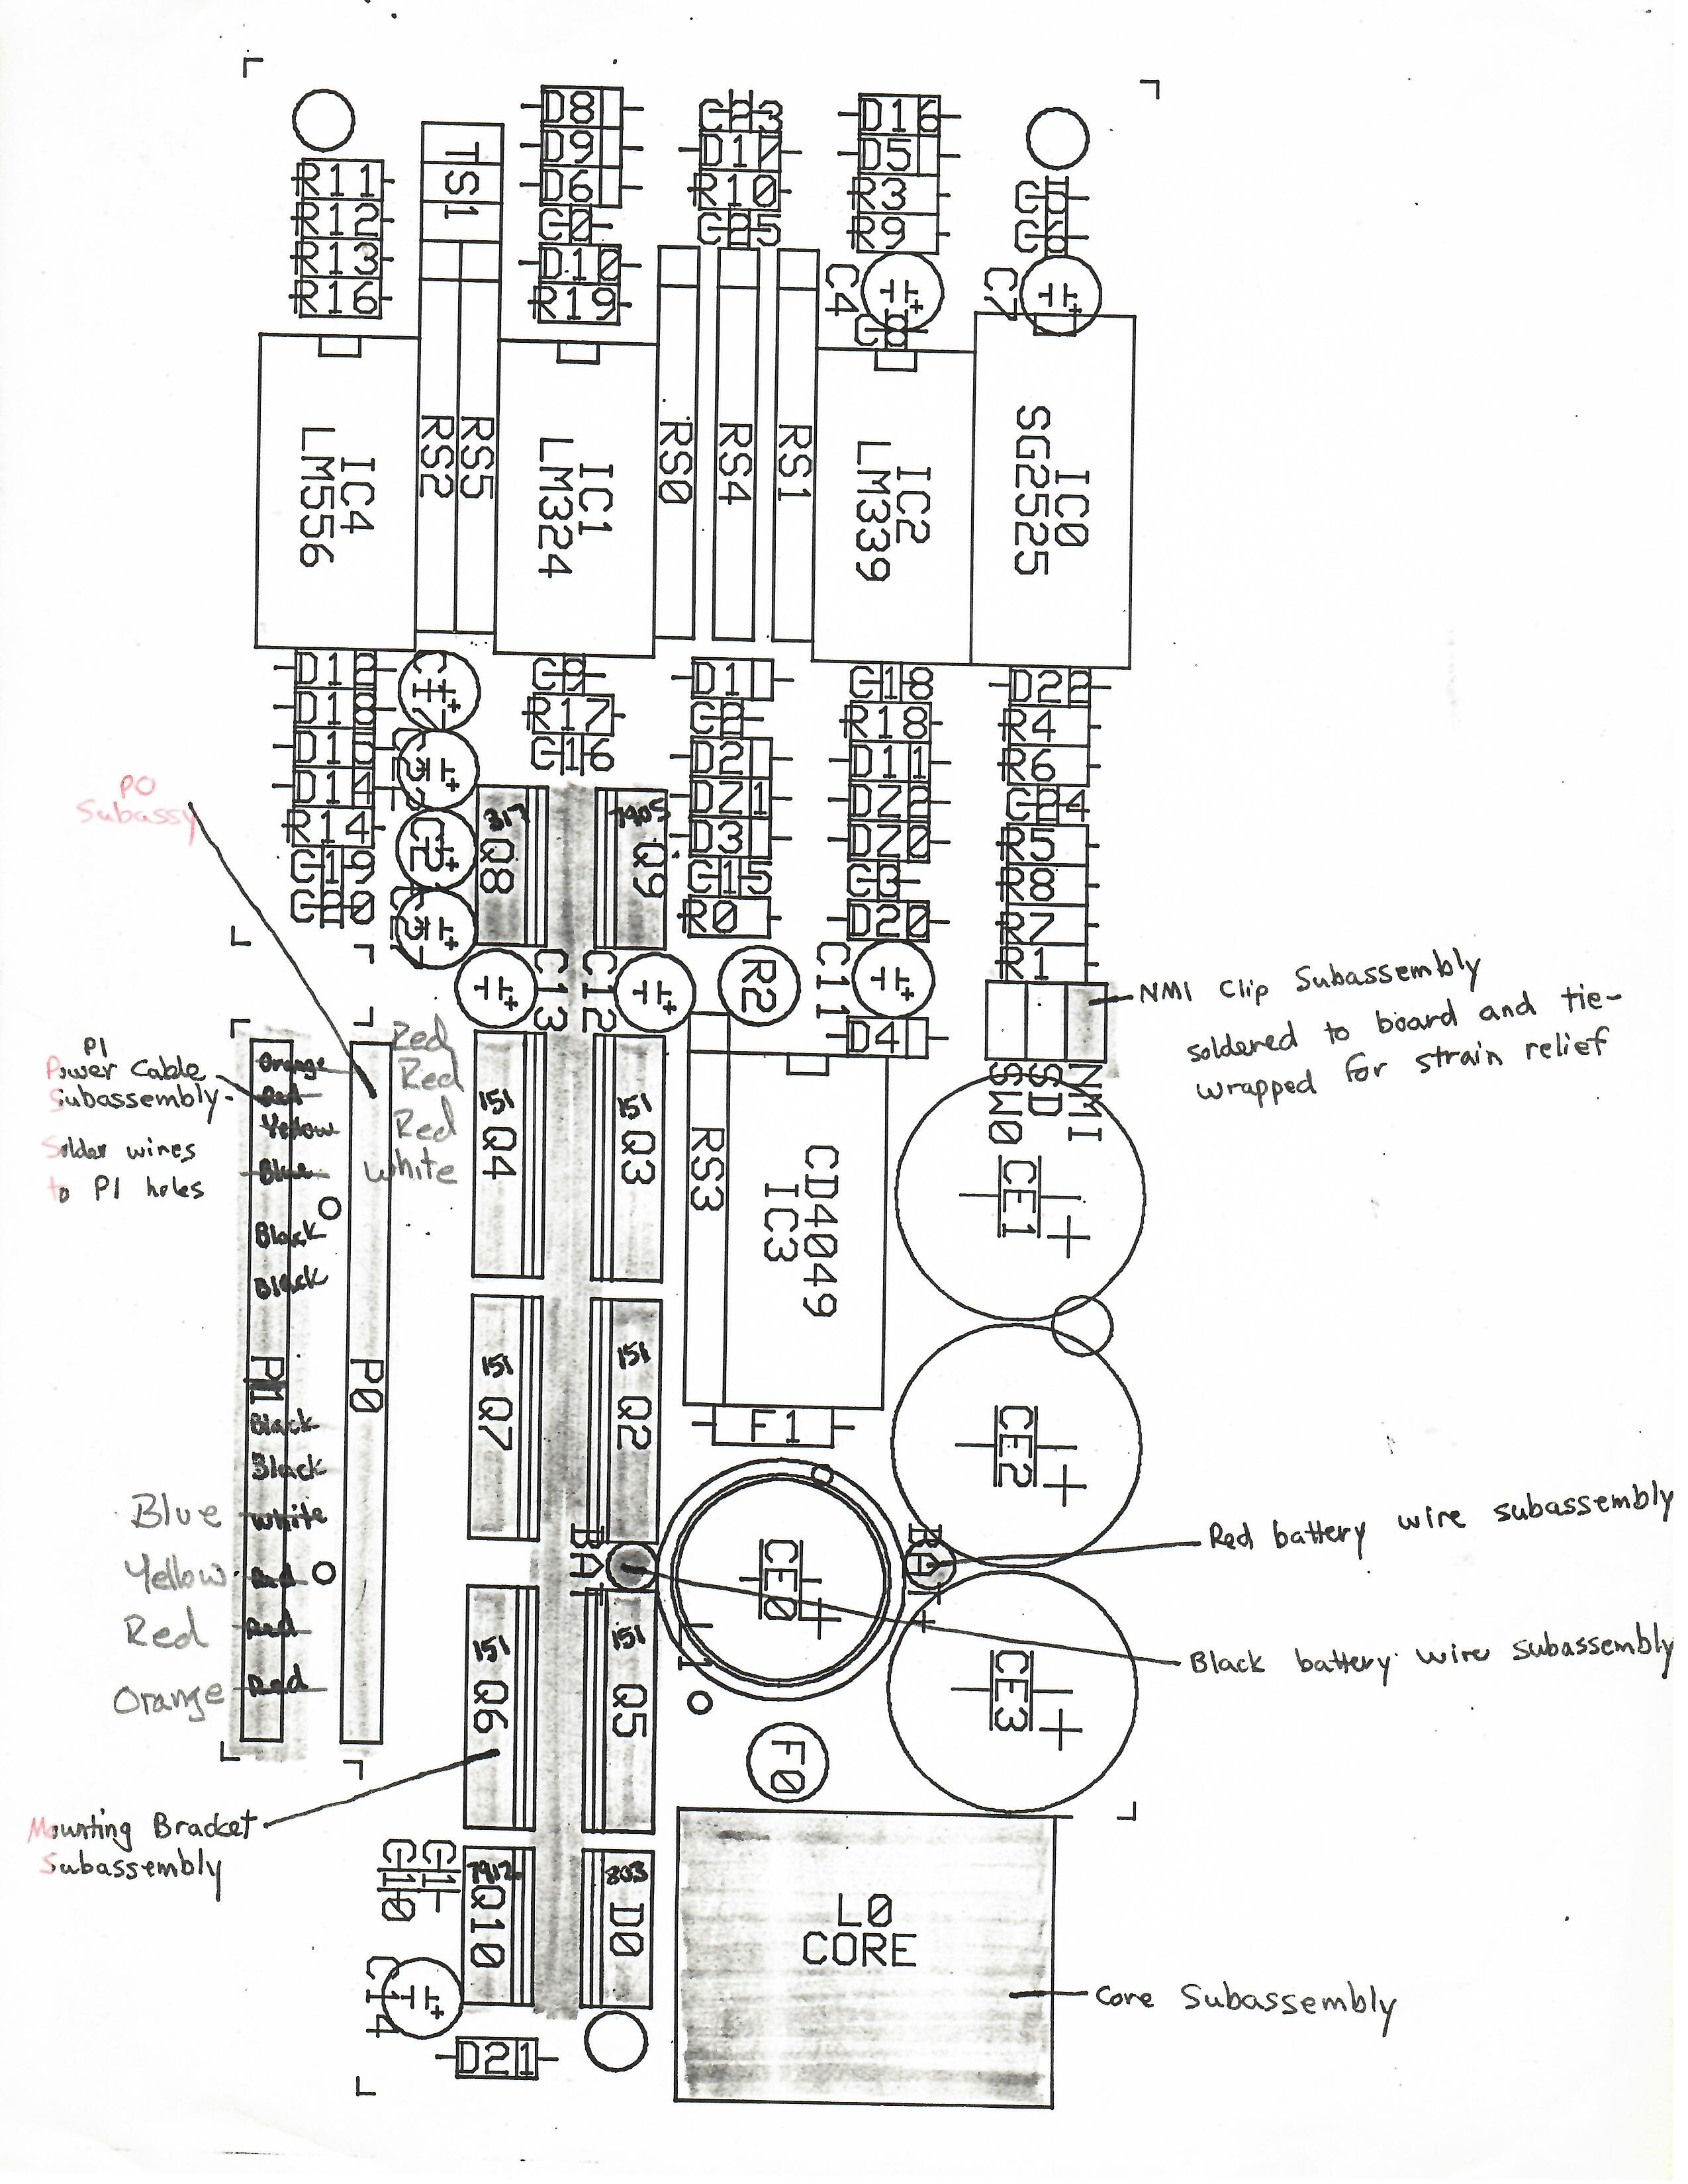 D8
D9
D6
C0
D10
R19
TS1
R11
R12
R13
R16
C23
D17
R10
C25
D16
D5
R3
R9
C4
C8
C5
C6
C7
IC4
LM556
RS2
RS5
IC1
LM324
RS0
RS4
RS1
IC2
LM339
IC0
SG2525
D12
D18
D15
D14
R14
C19
C20
C9
R17
C16
D1
C2
D2
DZ1
D3
C15
R0
C18
R18
D11
DZ2
DZ0
C3
D20
D22
R4
R6
C24
R5
R8
R7
R1
317
Q8
7905
Q9
C13
C12
R2
C11
D4
NMI
SD
SW0
NMI Clip Subassembly
soldered to board and tie-
wrapped for strain relief
P0
Subassy
P1
Power Cable
Subassembly
Solder wires
to P1 holes
Orange
Red
Yellow
Blue
Black
Black
P1
Black
Black
White
Red
Red
Red
Blue
Yellow
Red
Orange
Red
Red
Red
White
P0
151
Q4
151
Q3
151
Q7
151
Q2
151
Q6
151
Q5
RS3
CD4049
IC3
F1
CE1
CE2
CE0
CE3
BAT
BAT+
Red battery wire subassembly
Black battery wire subassembly
F0
Mounting Bracket
Subassembly
7912
Q10
803
D0
C14
D21
L0
CORE
Core Subassembly